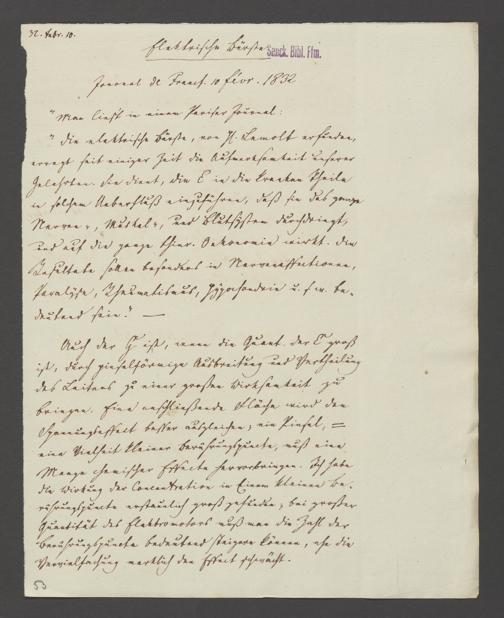 32. Febr. 10.
Elektrische Bürste
Senck. Bibl. Ffm.
Journal de Francf. 10 Févr. 1832
"Man liest in einem Pariser Journal:
"Die elektrische Bürste, von H. Lemolt erfunden,
erregt seit einiger Zeit die Aufmerksamkeit unserer
Gelehrten. Sie dient, die E in die kranken Theile
in solchem Ueberfluß einzuführen, daß sie das ganze
Nerven-, Muskel-, und Blutsystem durchdringt,
und auf die ganze thier. Oekonomie wirkt. Die
Resultate sollen besonders in Nervenaffectionen,
Paralyse, Rheumatismus, Hypochondrie u. s. w. be-
deutend sein." —
Auch der ist, wenn die Quant. der E groß
ist, durch pinselförmige Ausbreitung und Vertheilung
des Leiters zu einer großen Wirksamkeit zu
bringen. Eine anschließende Fläche wird den
Spannungseffect besser ausgleichen; ein Pinsel, =
eine Vielheit kleiner Berührungspuncte, muß eine
Menge chemischer Effecte hervorbringen. Ich habe
die Wirkung der Concentration in Einem kleinen Be-
rührungspuncte erstaunlich groß gefunden; bei großer
Quantität des Elektromotors muß man die Zahl der
Berührungspuncte bedeutend steigern können, ehe die
Vervielfachung merklich den Effect schwächt.